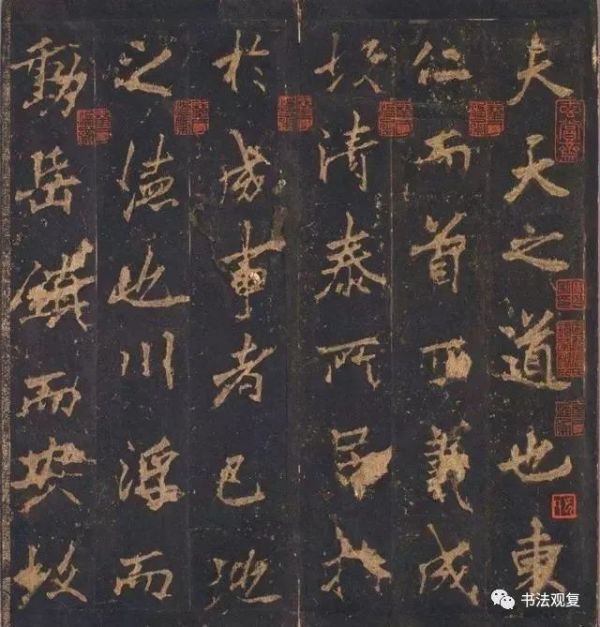 夫天之道也東
仁而首西義成
故清泰所居指
於成事者已地
之德也川浮而
動岳鎮而安故
书法观复